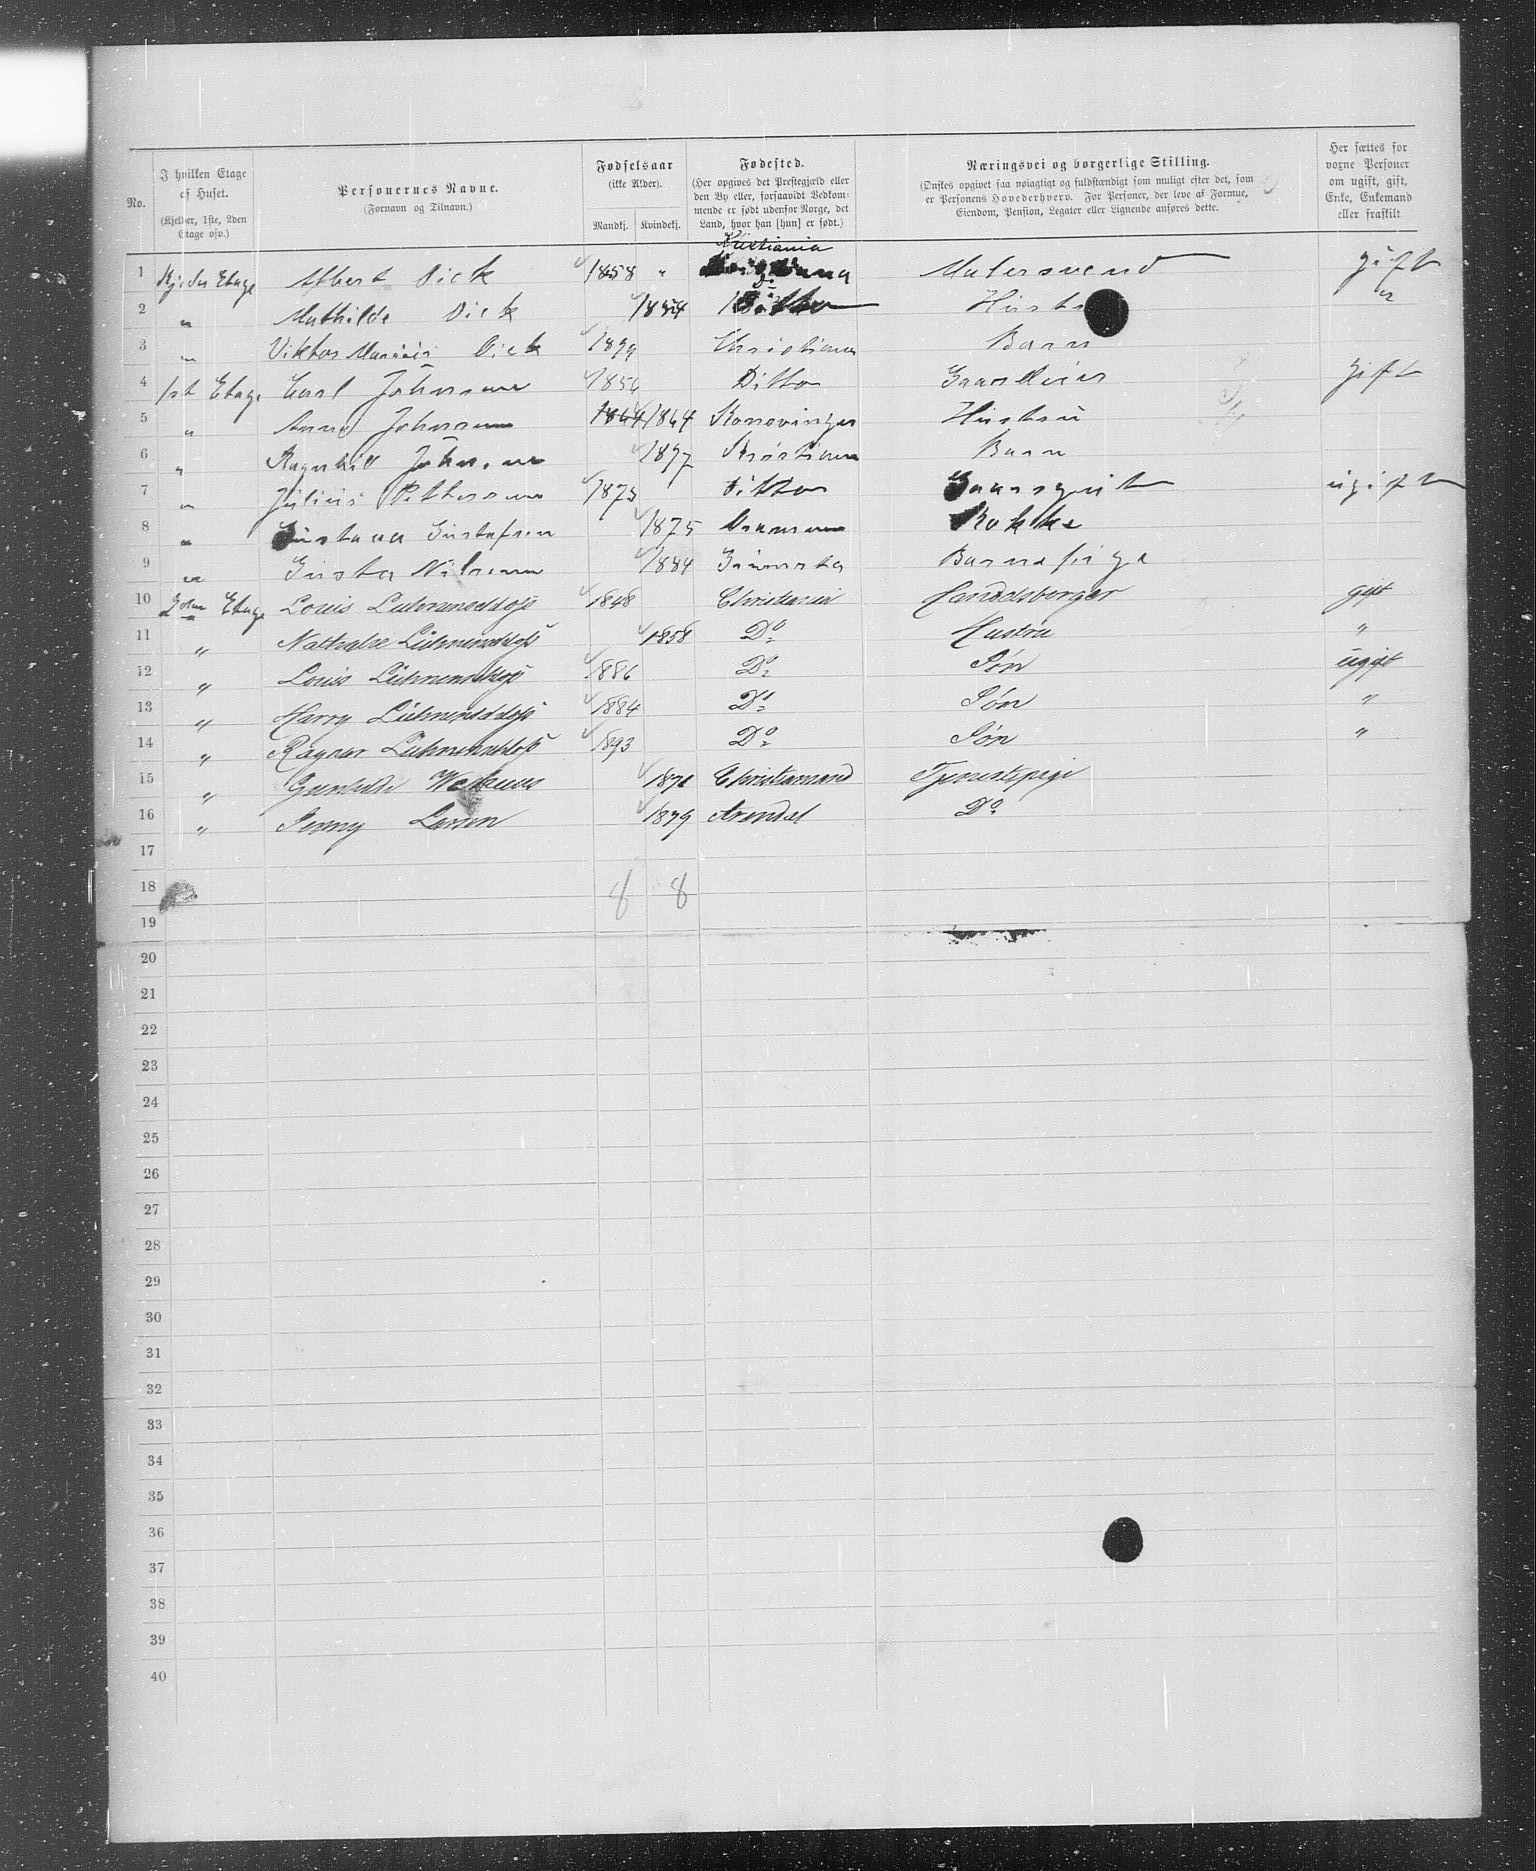 No.
I hvilken Etage af Huset.
(Kjelder, 1ste, 2den Etage osv.)
Personernes Navne.
(Fornavn og Tilnavn.)
Fødselsaar
(ikke Alder).
Mandkj. Kvindekj.
Fødested.
(Her opgives det Prestegjæld eller den By eller, forsaavidt Vedkommende er født udenfor Norge, det Land, hvor han [hun] er født.)
Næringsvei og borgerlige Stilling.
(Ønskes opgivet saa nøiagtigt og fuldstændigt som muligt efter det, som er Personens Hovederhverv. For Personer, der leve af Formue, Eiendom, Pension, Legater eller Lignende anføres dette.
Her sættes for voxne Personer om ugift, gift, Enke, Enkemand eller fraskilt.
Kristiania
1 Kjelder Etage Albert Dick 1858 " Malersvend gift
2 " Mathilde Dick 1854 Ditto Hustr "
3 " Viktor Marius Dick 1899 Christiania Barn
4 1st Etage Carl Johnsen 1854 Ditto Gaardeier gift
5 " Anna Johnsen 1864 1864 Konsvinger Hustru
6 " Ragnhild Johnsen 1897 Kristiania Barn
7 " Julius Pettersen 1873 Ditto Gaardsgut ugift
8 " Gustava Gustafsen 1875 Drammen Kokke
9 " Gusta Nilsen 1884 Barnepige
10 2den Etage Louis Lühnenschloss 1848 Christiania Handelsborger gift
11 " Nathalie Lühnenschloss 1858 Do Hustru "
12 " Louis Lühnenschloss 1886 Do Søn ugift
13 " Harry Lühnenschloss 1884 Do Søn "
14 " Ragnar Lühnenschloss 1893 Do Søn "
15 " Gunhilde 1878 Christiansand Tjenestepige
16 " Jenny Larsen 1879 Arendal Do
17
18 8 8
19
20
21
22
23
24
25
26
27
28
29
30
31
32
33
34
35
36
37
38
39
40